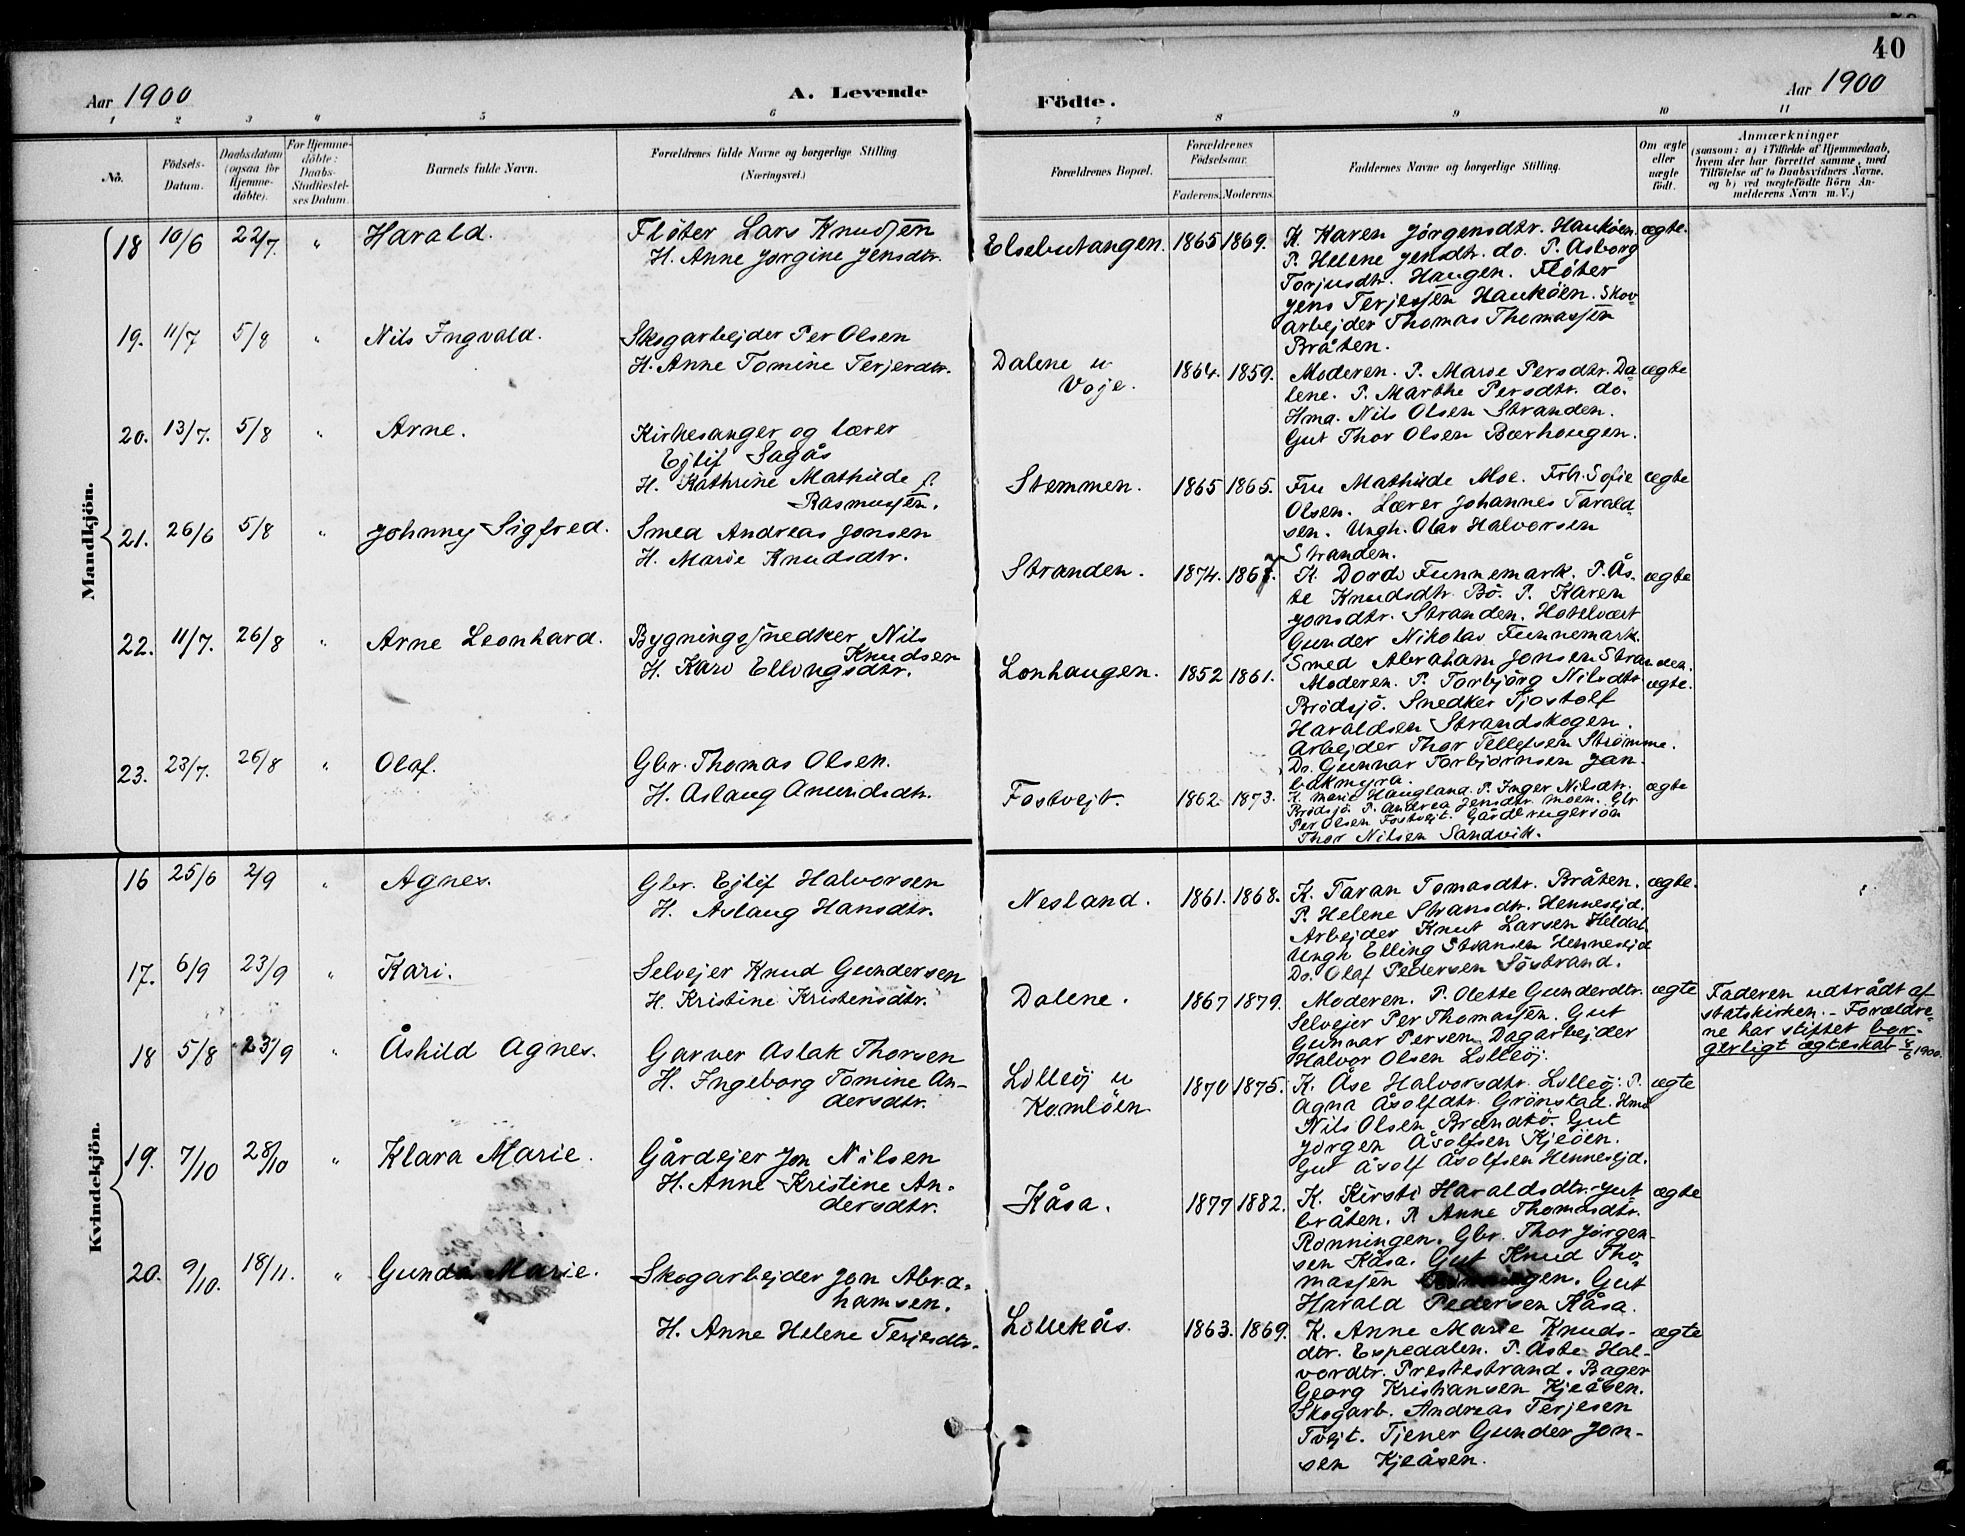 40
Aar 1900
A. Levende
Födte.
Aar 1900
1 2 3 4 5 6 7 8 9 10 11
No.
Födsels-Datum.
Daabsdatum (ogsaa för Hjemme-döbte).
For Hjemme-döbte: Daabs-Stadfæstel-ses Datum.
Barnets fulde Navn.
Forældrenes fulde Navne og borgerlige Stilling
(Næringsvei.)
Forældrenes Bopæl.
Forældrenes Födselsaar.
Faderens. Moderens.
Faddernes Navne og borgerlige Stilling.
Om ægte eller uægte födt.
Anmærkninger
(saasom: a) i Tilfælde af Hjemmedaab, hvem der har forrettet samme, med Tilföielse af to Daabsvidners Navne, og b) ved uægtefödte Börn An-melderens Navn m. V.)
Mandkjön.
18 10/6 22/7. " Harald. Fløter Lars Knudsen
H. Anne Jørgine Jensdtr.
Elsebutangen. 1865 1869. K. Karen Jørgensdtr. Haukøen. ægte.
P. Helene Jensdtr. do. P. Asborg
Torjusdtr. Haugen. Fløter
Jens Terjessen Haukøen. Skov-
arbejder Thomas Thomassen
Bråten.
19. 11/7 5/8 " Nils Ingvald. Skogarbejder Per Olsen
H. Anne Tomine Terjerdtr.
Dalene u
Voje. 1864. 1859. Moderen. P. Marie Persdtr. Da- ægte
lene. P. Marthe Persdtr. do.
Hma. Nils Olsen Stranden.
Gut Thor Olsen Bærhougen.
20. 13/7. 5/8 " Arne. Kirkesanger og lærer
Ejlif Sagås
H. Kathrine Mathilde f.
Rasmussen.
Stemmen. 1865 1865. Fru Mathilde Moe. Frk. Sofie ægte
Olsen. Lærer Johannes Tarald-
sen. Ungk. Olav Halvorsen
Stranden.
21. 26/6 5/8 " Johnny Sigfred. Smed Andreas Jonsen
H. Marie Knudsdtr.
Stranden. 1874. 1867. K. Dordi Funnemark. P. Ås- ægte
te Knudsdtr. Bö. P. Karen
Jonsdtr. Stranden. Hotelvært
Gunder Nikolai Funnemark.
Smed Abraham Jonsen Stranden.
22. 11/7. 26/8 " Arne Leonhard. Bygningssnedker Nils
Knudsen
H. Kari Ellingsdtr.
Lonhaugen. 1852 1861. Moderen. P. Torbjörg Nilsdtr. ægte.
Brødsjö. Snedker Tjostolf
Haraldsen Strandskogen.
Arbejder Thor Tellefsen Strömme.
Do. Gunnar Torbjørnsen Jan-
bakmyra.
23. 23/7. 26/8 " Olaf. Gbr. Thomas Olsen.
H. Aslaug Amundsdtr.
Fostvejt. 1862 1873. K. Marie Haugland. P. Inger Nilsdtr. ægte
Brødsjö. P. Andrea Jensdtr. Moen. Gbr.
Per Olsen Fostvejt. Gårdbrugersøn
Thor Nilsen Sandvik.
Kvindekjön.
16 25/6 2/9 " Agnes. Gbr. Ejlif Halvorsen
H. Aslaug Hansdtr.
Nesland. 1861. 1868. K. Taran Tomasdtr. Bråten. ægte.
P. Helene Stiansdtr. Hennesejd.
Arbejder Knut Larsen Heldal.
Ungk Elling Stiansen Hennesejd
Do. Olaf Pedersen Söstrand.
17. 6/9 23/9 " Kari. Selvejer Knud Gundersen
H. Kristine Kristensdtr.
Dalene. 1867 1879. Moderen. P. Olette Gunderdtr. ægte
Selvejer Per Thomassen. Gut
Gunnar Persen. Dagarbejder
Halvor Olsen Lilleöj.
Faderen udtrådt af
statskirken. - Forældre-
ne har stiftet bor-
gerligt ægteskab 8/6 1900.
18 5/8 23/9 " Åshild Agnes. Garver Aslak Thorsen
H. Ingeborg Tomine An-
dersdtr.
Lilleöj u
Komlöen 1870 1875. K. Åse Halvorsdtr. Lilleöj. P. ægte
Agna Åsolfdtr. Grönstad. Hmd
Nils Olsen Brandtö. Gut
Jørgen Åsolfsen Kjeöen.
Gut Åsolf Åsolfsen Hennesejd.
19. 7/10 28/10 " Klara Marie. Gårdejer Jon Nilsen
H. Anne Kristine An-
dersdtr.
Kåsa. 1877 1882. K. Kirsti Haraldsdtr. Jut- ægte
bråten. P. Anne Thomasdtr.
Rønningen. Gbr. Thor Jørgen-
sen Kåsa. Gut Knud Tho-
massen Rønningen. Gut
Harald Pedersen Kåsa.
20. 9/10. 18/11. " Gunda Marie. Skogarbejder Jon Abra-
hamsen.
H. Anne Helene Terjesdtr.
Lillekås. 1863. 1869. K. Anne Marie Knuds- ægte
dtr. Espedalen. P. Åste Hal-
vordtr. Prestestrand. Bager
Georg Kristiansen Kjeåsen.
Skogarb. Andreas Terjesen
Tvejt. Tjener Gunder Jon-
sen Kjeåsen.